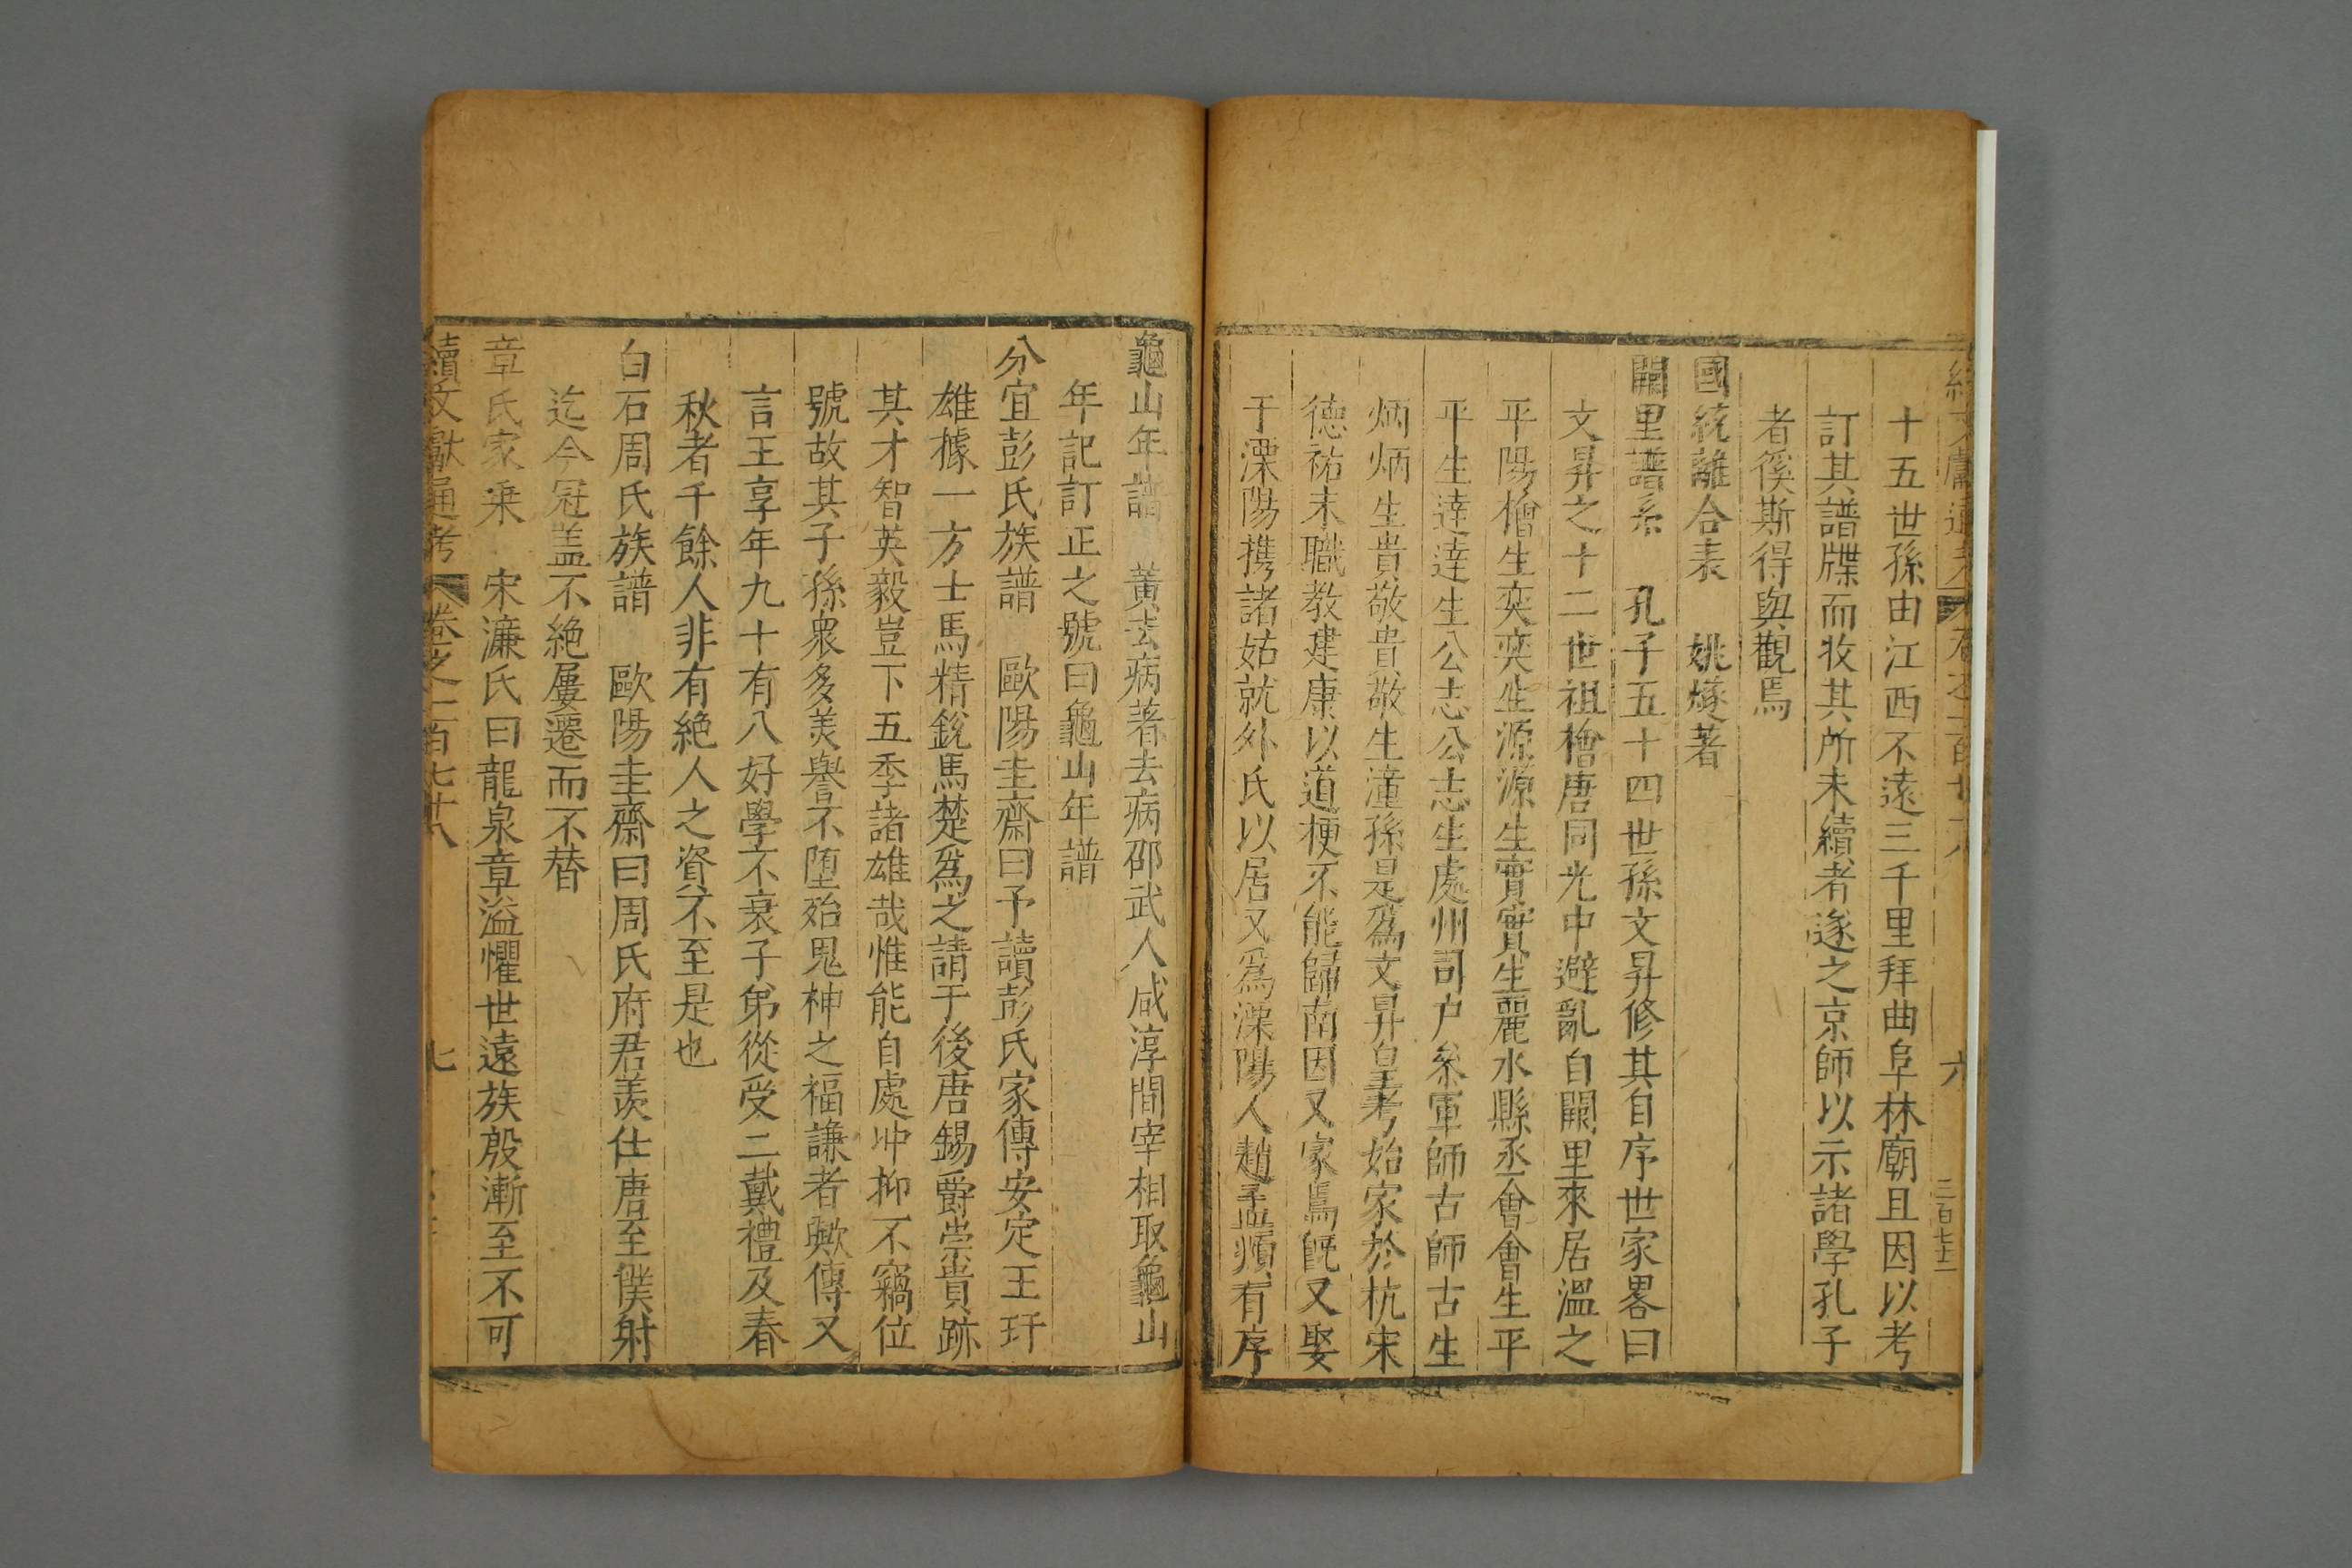 十五世孫由江西不遠三千里拜曲阜林廟且因以考
訂其譜牒而收其所未續者遂之京師以示諸學孔子
者徯斯得與觀焉
國統離合表　姚燧著
闕里譜系　孔子五十四世孫文昇修其自序世家畧曰
文昇之十二世祖檜唐同光中避亂自闕里來居溫之
平陽檜生奕奕生源源生實實生麗水縣丞會會生平
平生逹逹生公志公志生處州司户叅軍師古師古生
炳炳生貴敬貴敬生潼孫是為文昇皇考始家於杭宋
德祐末職教建康以道梗不能歸南因又家焉旣又娶
于溧陽携諸姑就外氏以居又爲溧陽人趙孟頫有序
龜山年譜　黃去病著去病邵武人咸淳間宰相取龜山
年記訂正之號曰龜山年譜
分宜彭氏族譜　歐陽圭齋曰予讀彭氏家傳安定王玕
雄據一方士馬精銳馬楚爲之請于後唐錫爵崇貴跡
其才智英毅豈下五季諸雄哉惟能自處冲抑不竊位
號故其子孫衆多羙譽不堕殆鬼神之福謙者歟傳又
言王享年九十有八好學不衰子弟從受二戴禮及春
秋者千餘人非有絶人之資㳒不至是也
白石周氏族譜　歐陽圭齋曰周氏府君羨仕唐至僕射
迄今冠盖不絶屢遷而不替
章氏家乘　宋濂氏曰龍泉章溢懼世遠族殷漸至不可
續文獻通考　卷之二百七　七